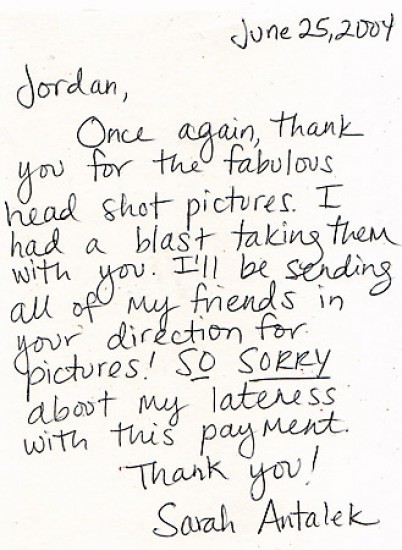 June 25, 2004
Jordan,
Once again, thank
you for the fabulous
head shot pictures. I
had a blast taking them
with you. I'll be sending
all of my friends in
your direction for
pictures! SO SORRY
about my lateness
with this payment.
Thank you!
Sarah Antalek